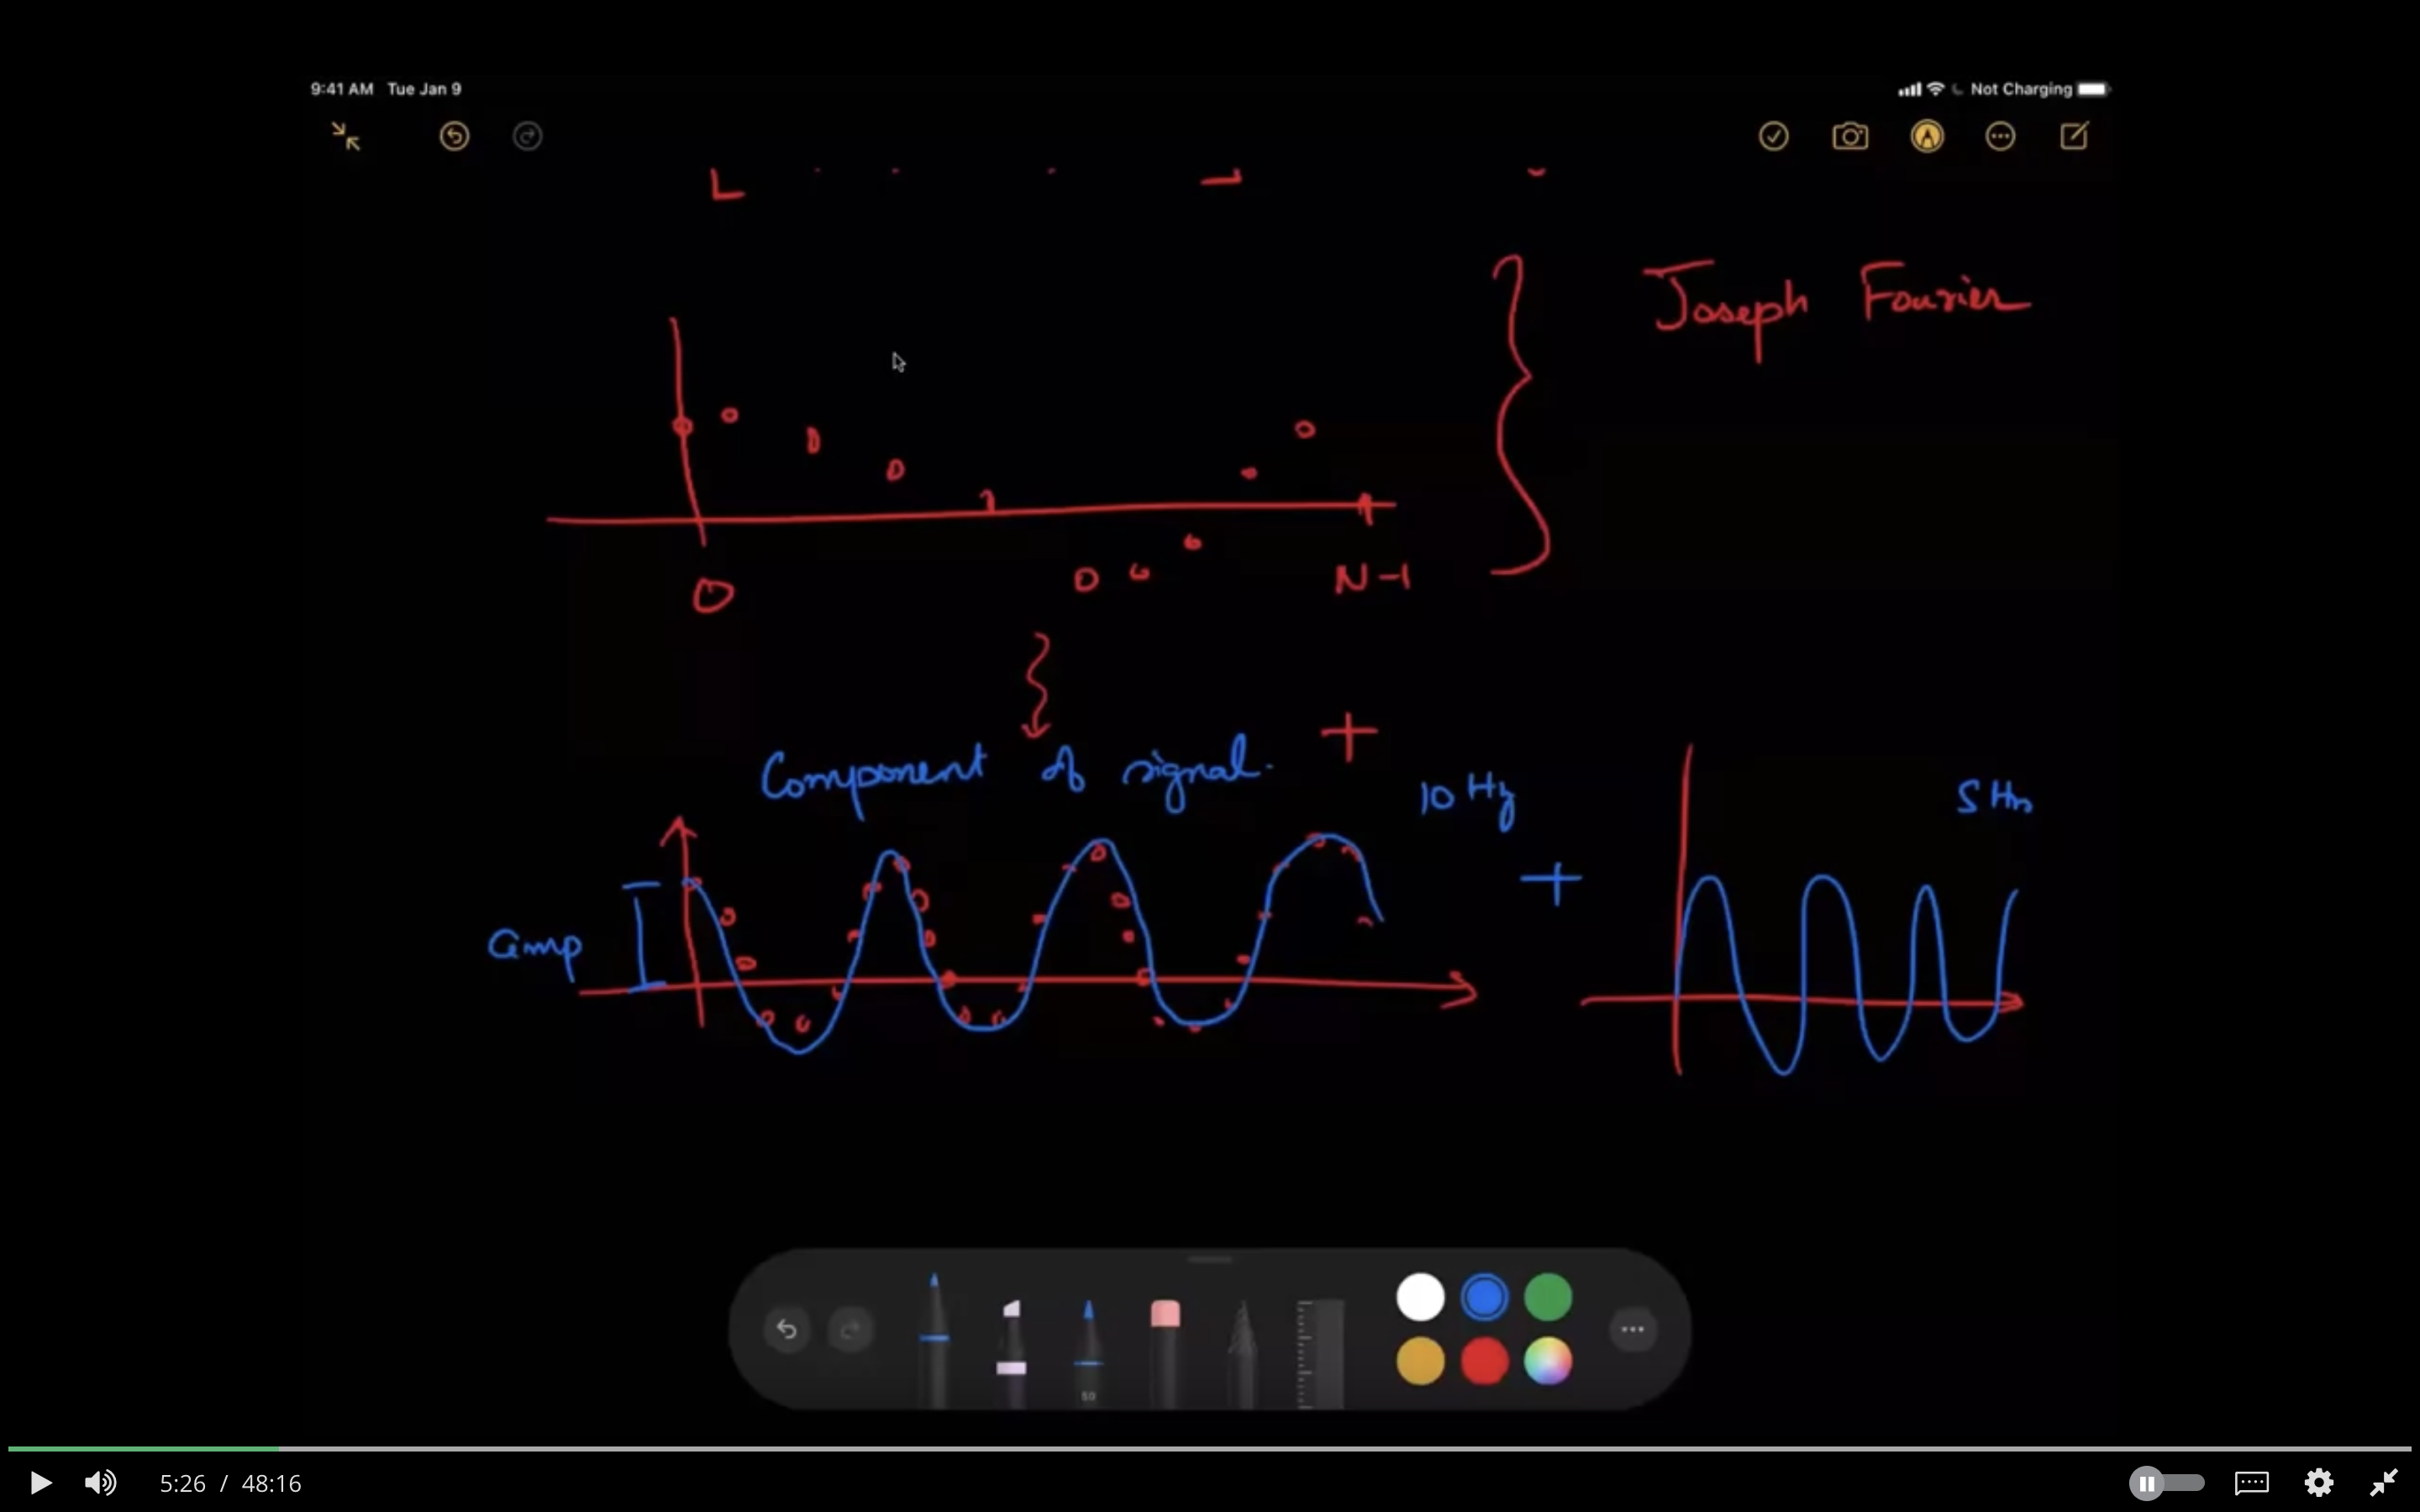 9:41 AM Tue Jan 9
Not Charging
Joseph Fourier
0
N-1
Component of signal.
+
10 Hz
5 Hz
+
amp
50
5:26 / 48:16